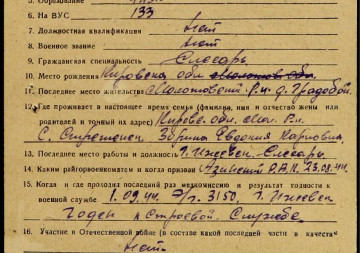 5. Образование
6. На ВУС 133
7. Должностная квалификация Нет
8. Военное звание Нет
9. Гражданская специальность Слесарь
10. Место рождения Кировская обл.
11. Последнее место жительства Молотовский р-н д.
12. Где проживает в настоящее время семья (фамилия, имя и отчество жены или
родителей и точный их адрес) Кировс. обл. Мол. р-н
с. Евдокия Карповна
13. Последнее место работы и должность г. Ижевск, Слесарь
14. Каким райгорвоенкоматом и когда призван Азинский Р.В.К. 23.08.44.
15. Когда и где проходил последний раз медкомиссию и результат годности к
военной службе 1.09.44. Э/г. 3150, г. Ижевск
Годен к строевой службе
16. Участие в Отечественной войне (в составе какой последней части в качестве
Нет.